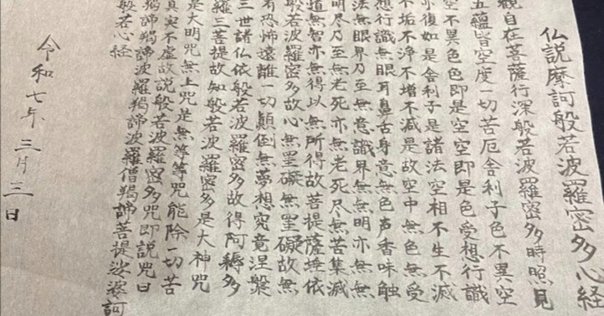 仏説摩訶般若波羅密多心経
観自在菩薩行深般若波羅密多時照見
五蘊皆空度一切苦厄舎利子色不異空
空不異色色即是空空即是色受想行識
亦復如是舎利子是諸法空相不生不滅
不垢不浄不増不減是故空中無色無受
想行識無眼耳鼻舌身意無色声香味触
法無眼界乃至無意識界無無明亦無無
明尽乃至無老死亦無老死尽無苦集滅
道無智亦無得以無所得故菩提薩埵依
般若波羅密多故心無罣礙無罣礙故無
有恐怖遠離一切顛倒無夢想究竟涅槃
三世諸仏依般若波羅密多故得阿耨多
羅三菩提故知般若波羅密多是大神咒
是大明咒無上咒是無等等咒能除一切苦
真実不虚故説般若波羅密多咒即説咒曰
羯諦羯諦波羅羯諦波羅僧羯諦菩提娑婆訶
般若心経
令和七年三月三日